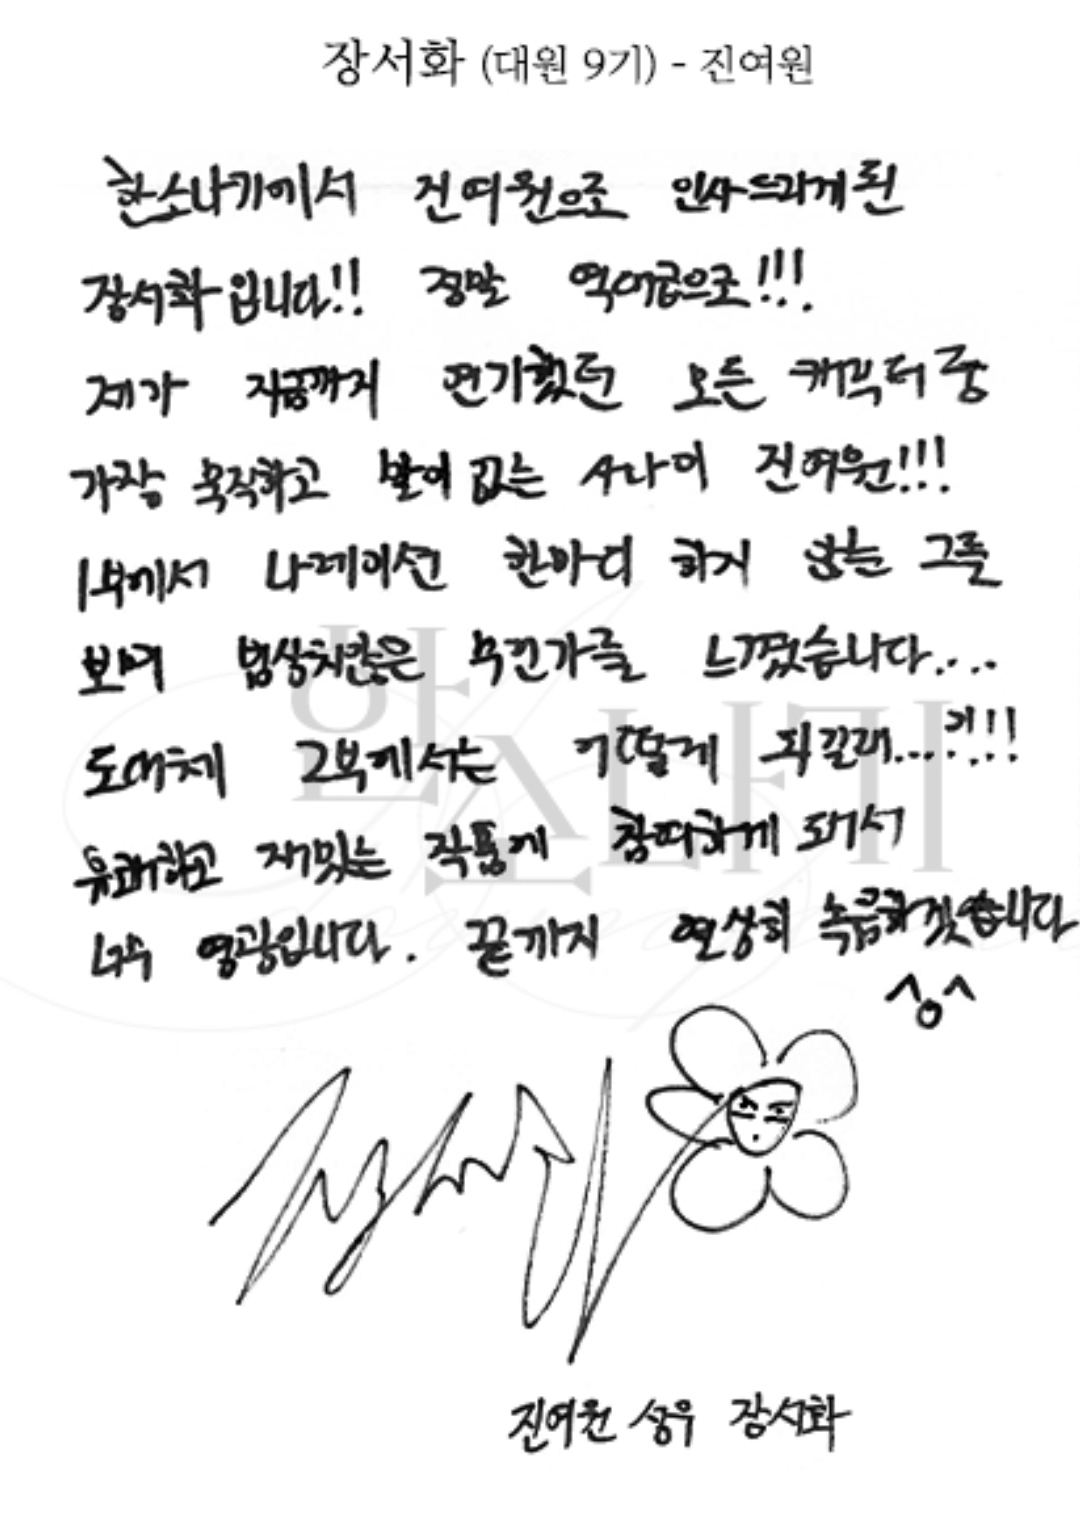 장서화 (대원 9기) - 진여원
한소나기에서 진여원으로 인사드리게 된
장서화입니다!! 정말 역대급으로!!!
제가 지금까지 연기했던 모든 캐릭터 중
가장 묵직하고 말이 없는 사나이 진여원!!!
1부에서 나레이션 한마디 하지 않는 그를
보며 범상치않은 무언가를 느꼈습니다....
도대체 2부에서는 어떻게 되길래...?!!!
유쾌하고 재밌는 작품에 참여하게 돼서
너무 영광입니다. 끝까지 열심히 녹음하겠습니다
^o^
진여원 성우 장서화
한소나기